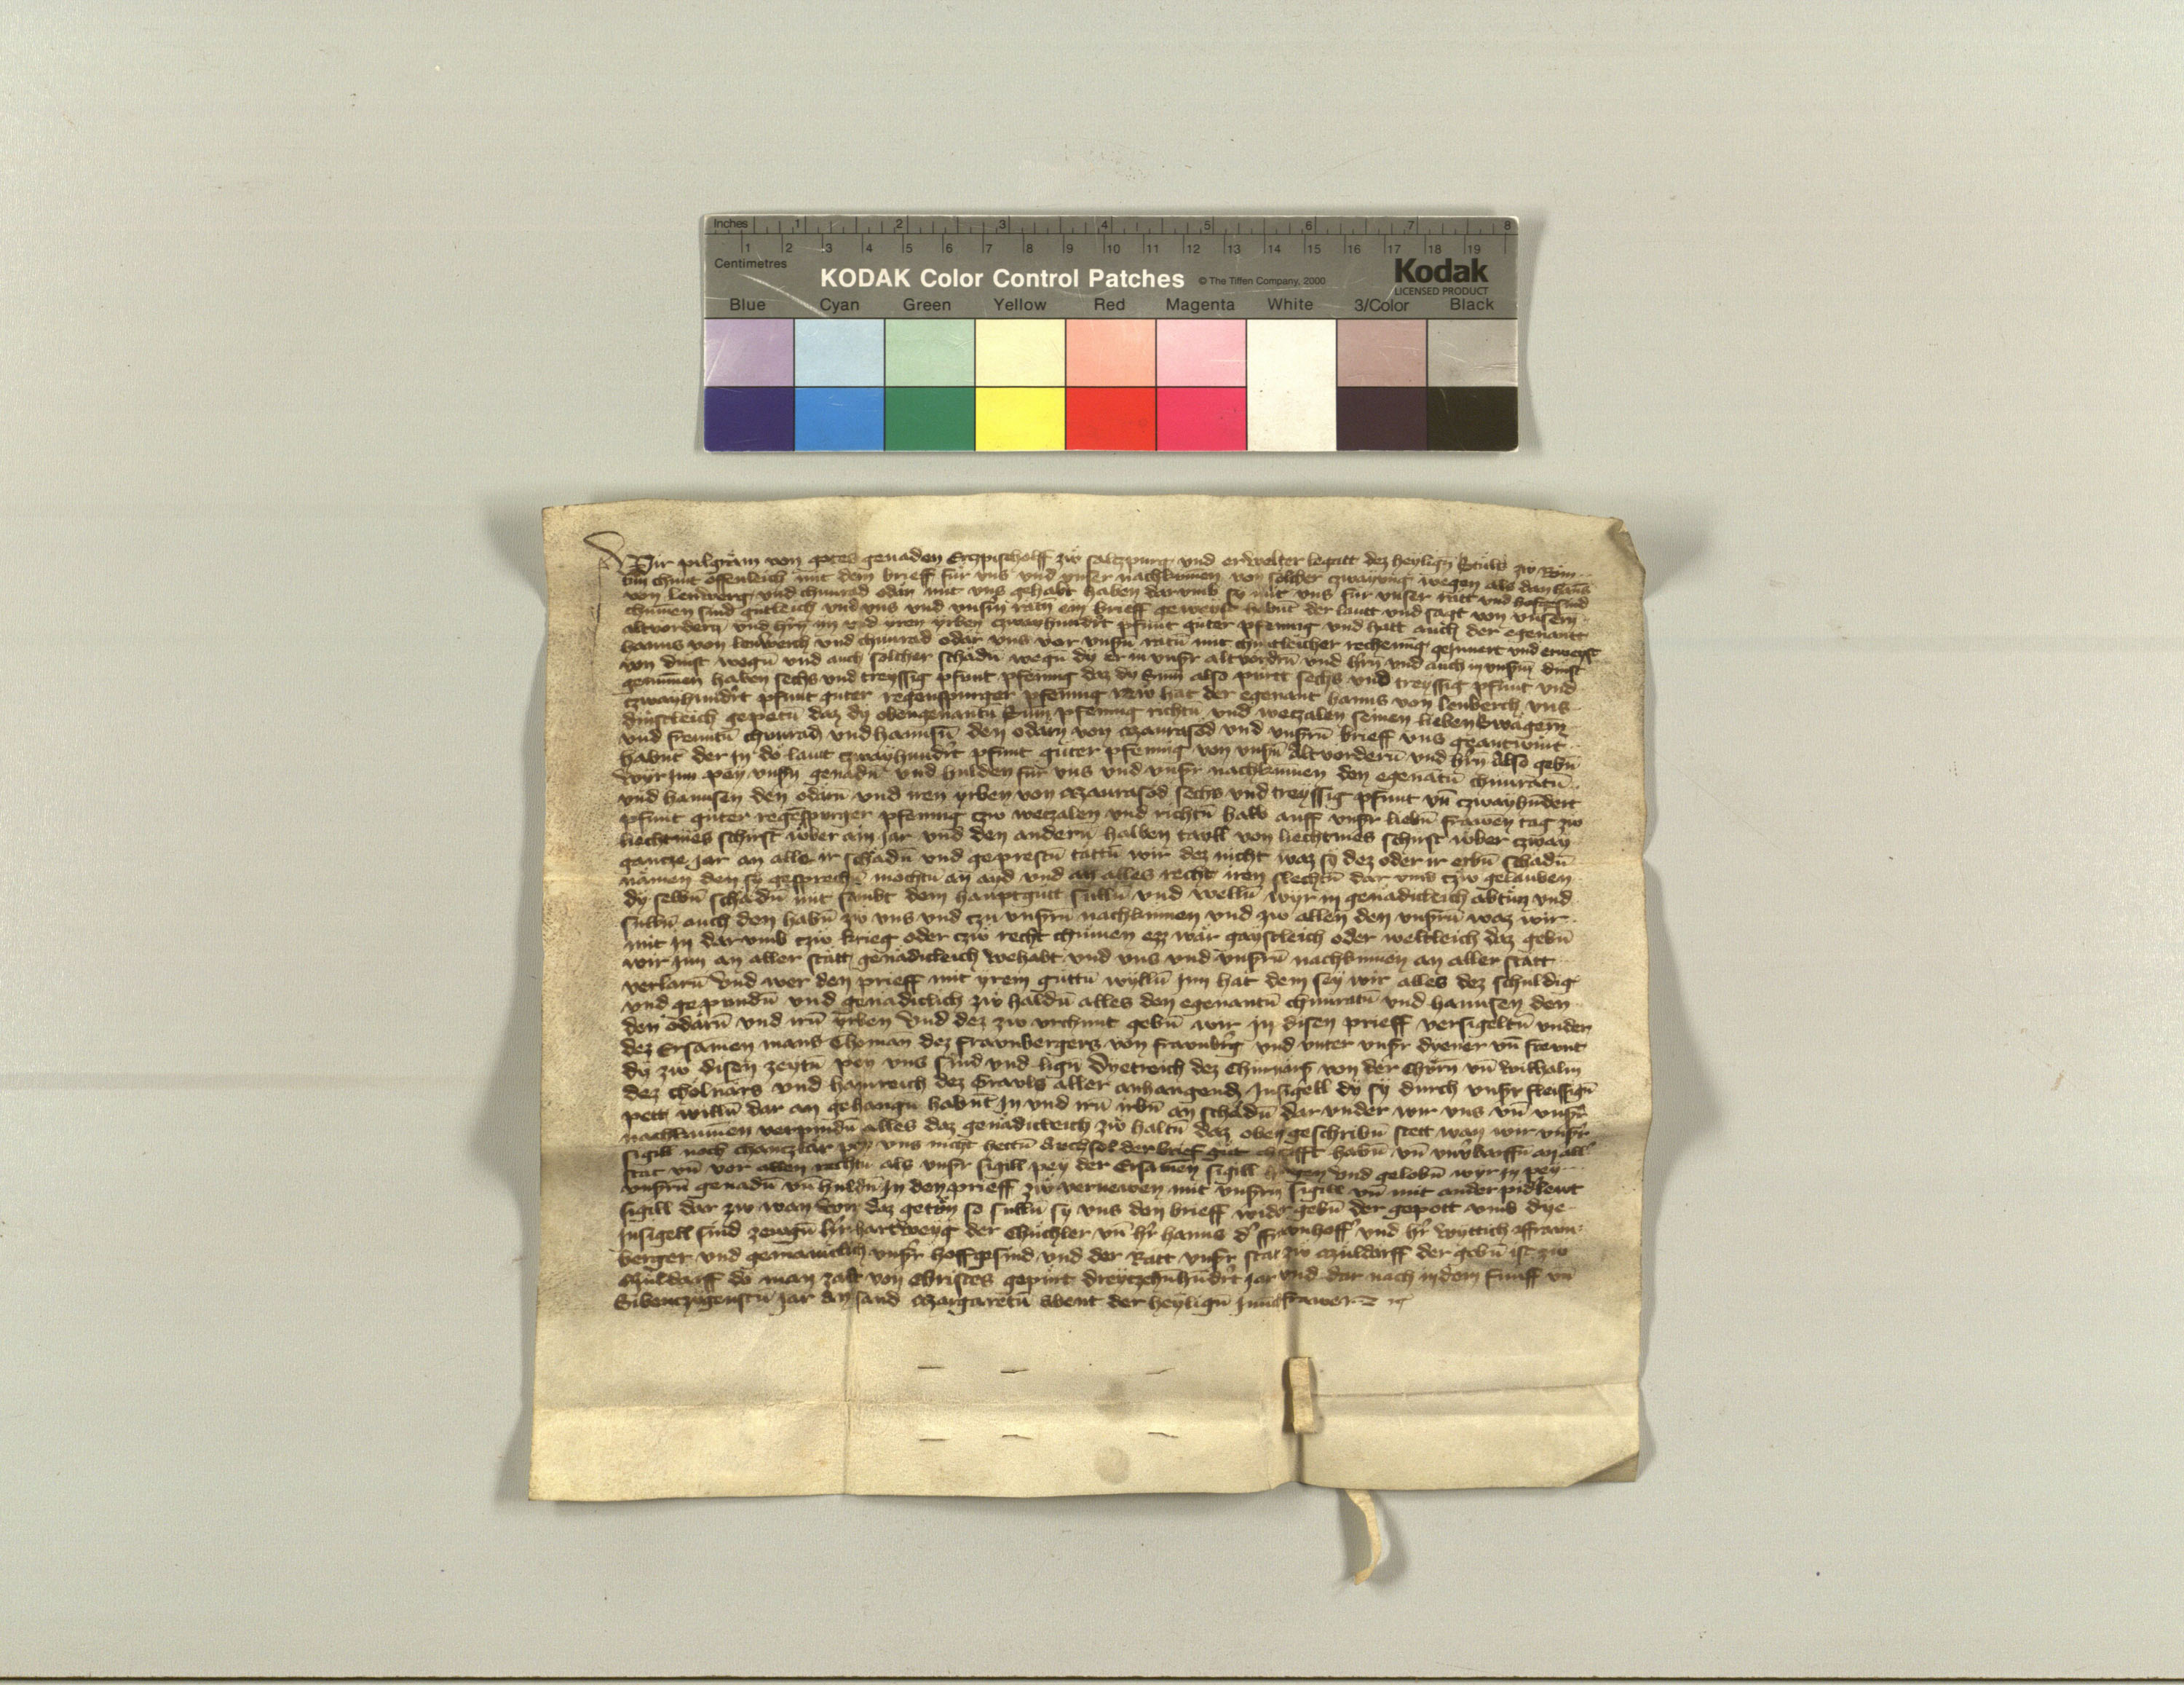 Inches 1 2 3 4 5 6 7 8
1 2 3 4 5 6 7 8 9 10 11 12 13 14 15 16 17 18 19
Centimetres
KODAK Color Control Patches © The Tiffen Company, 2000 Kodak
LICENSED PRODUCT
Blue Cyan Green Yellow Red Magenta White 3/Color Black
Wir pilgräm von gotes genaden Erczpischolff zw saltzpurg und erwelter legatt dez heylign̄ Stuls zw Rom
tün chunt offenleich mit dem brieff für uns und unser nachkumen von solcher czwayung wegen als dan hans
von lenberg und chunrad odar mit uns gehabt haben darumb sy mit uns für unser rätt und hofgesind
chumen sind gutleich und uns und unsern rätn ein brieff geweyst habnt der lautt und sagt von unsern
altvordern und hrn im und yren yrben czwayhundert pfunt guter pfennig und hatt auch der egenantt
hanns von lenberch und chunrad odär uns vor unsern rätn mit chuntleicher rechenung gefurert und erweyst
von dinst wegn̄ und auch solcher schädn̄ wegn̄ dy er in unsr altvordrn̄ und hrn̄ und auch in unsern dinst
genumen haben sechs und treyssig pfunt pfennig daz dy Sum also purtt sechs und treyssig pfunt und
czwayhundert pfunt guter regenspurger pfennig Nw hat der egenant hanns von lenberch uns
dinstleich gepetn̄ daz dy obengenantn̄ Sum pfennig richtn̄ und weczalen seinen lieben Swägern
und freuntn̄ chunrad und hannsn̄ den odarn von Maurasöd und unsern̄ brieff uns geantwurt
habnt der in do lautt czwayhundert pfunt guter pfennig von unsern Altvordern̄ und hrn̄ Also gebn̄
wyr inn pey unsern genadn̄ und hulden für uns und unsr nachkumen den egenatn̄ chunratn̄
und hannsen den odarn̄ und iren yrben von Maurasöd sechs und treyssig pfunt un̄ czwayhundert
pfunt guter regenspurger pfennig czw weczalen und richtn̄ halb auff unsr liebn̄ frawen tag zw
liechtmes schirst uber ain jar und den andern̄ halben tayll von liechtmes schirst uber czway
gancze jar an alle ir schädn̄ und geprestn̄ tättn̄ wir dez nicht waz sy dez oder ir erbn̄ schadn̄
nämen den sy gesprechn̄ mochtn̄ an ayd und an alles recht iren slechtn̄ dar umb czw gelauben
dy selbn̄ schädn̄ mit sambt dem hauptgutt sulln̄ und welln̄ wyr in genädicleich abtun und
sulln̄ auch den habn̄ zw uns und czu unsern̄ nachkumen und zw allen den unsern̄ waz wir
mit in darumb czw krieg oder czw recht chumen ez wär gaystleich oder weltleich daz gebn̄
wir inn an aller statt genadicleich wehabt und uns und unsern̄ nachkumen an aller statt
verlorn̄ Und wer den prieff mit yrem guttn̄ wylln̄ inn hat dem sey wir alles dez schuldig
und gepundn̄ und genädiclich zw haldn̄ alles den egenantn̄ chunratn̄ und hannsen den
den odärn̄ und irn̄ yrben Und dez zw urchunt gebn̄ wir in disen prieff versigeltn̄ under
dez Ersamen mans Thoman dez fraunbergers von fraunbrg und unter unsr dyener un̄ freunt
dy zw disen zeytn̄ pey uns sind und lign̄ Dyetreich dez von der un̄ wilhalm
dez und haynreich dez aller anhangendz Insigell dy sy durch unsr fleissign̄
pett willn̄ dar an gehangn̄ habnt in und irn̄ irbn̄ an schadn̄ dar under wir uns un̄ unsr
nachkumen verpindn̄ alles daz genädicleich zw haltn̄ daz oben geschribn̄ stett wan wir unsr
sigill noch chanczlär pey uns nicht hettn̄ der brief gut habn̄ un̄ an all
stat un̄ vor allen rechtn̄ als unsr sigill pey der Ersamen sigill und gelobn̄ wyr in pey
unsern̄ genadn̄ un̄ huldn̄ in den prieff zw vernewen mit unsern sigill un̄ mit ander pidleut
sigill dar zw wan wir daz getun so sulln̄ sy uns den brieff wider gebn̄ der gepett umb dye
Insigell sind zewgn̄ hr hartweyg der un̄ hr hanns d' und hr wyttich ffraun
berger und gemainclich unsr hoffgesind und der Ratt unsr stat zw Müldorff der gebn̄ ist zw
Müldorff do man zalt von Christes gepurt dreytzehnhundert jar und dar nach in dem funff un̄
Sibenczigenstn̄ jar an sand Margaretn̄ abent der heylign̄ junckfrawen